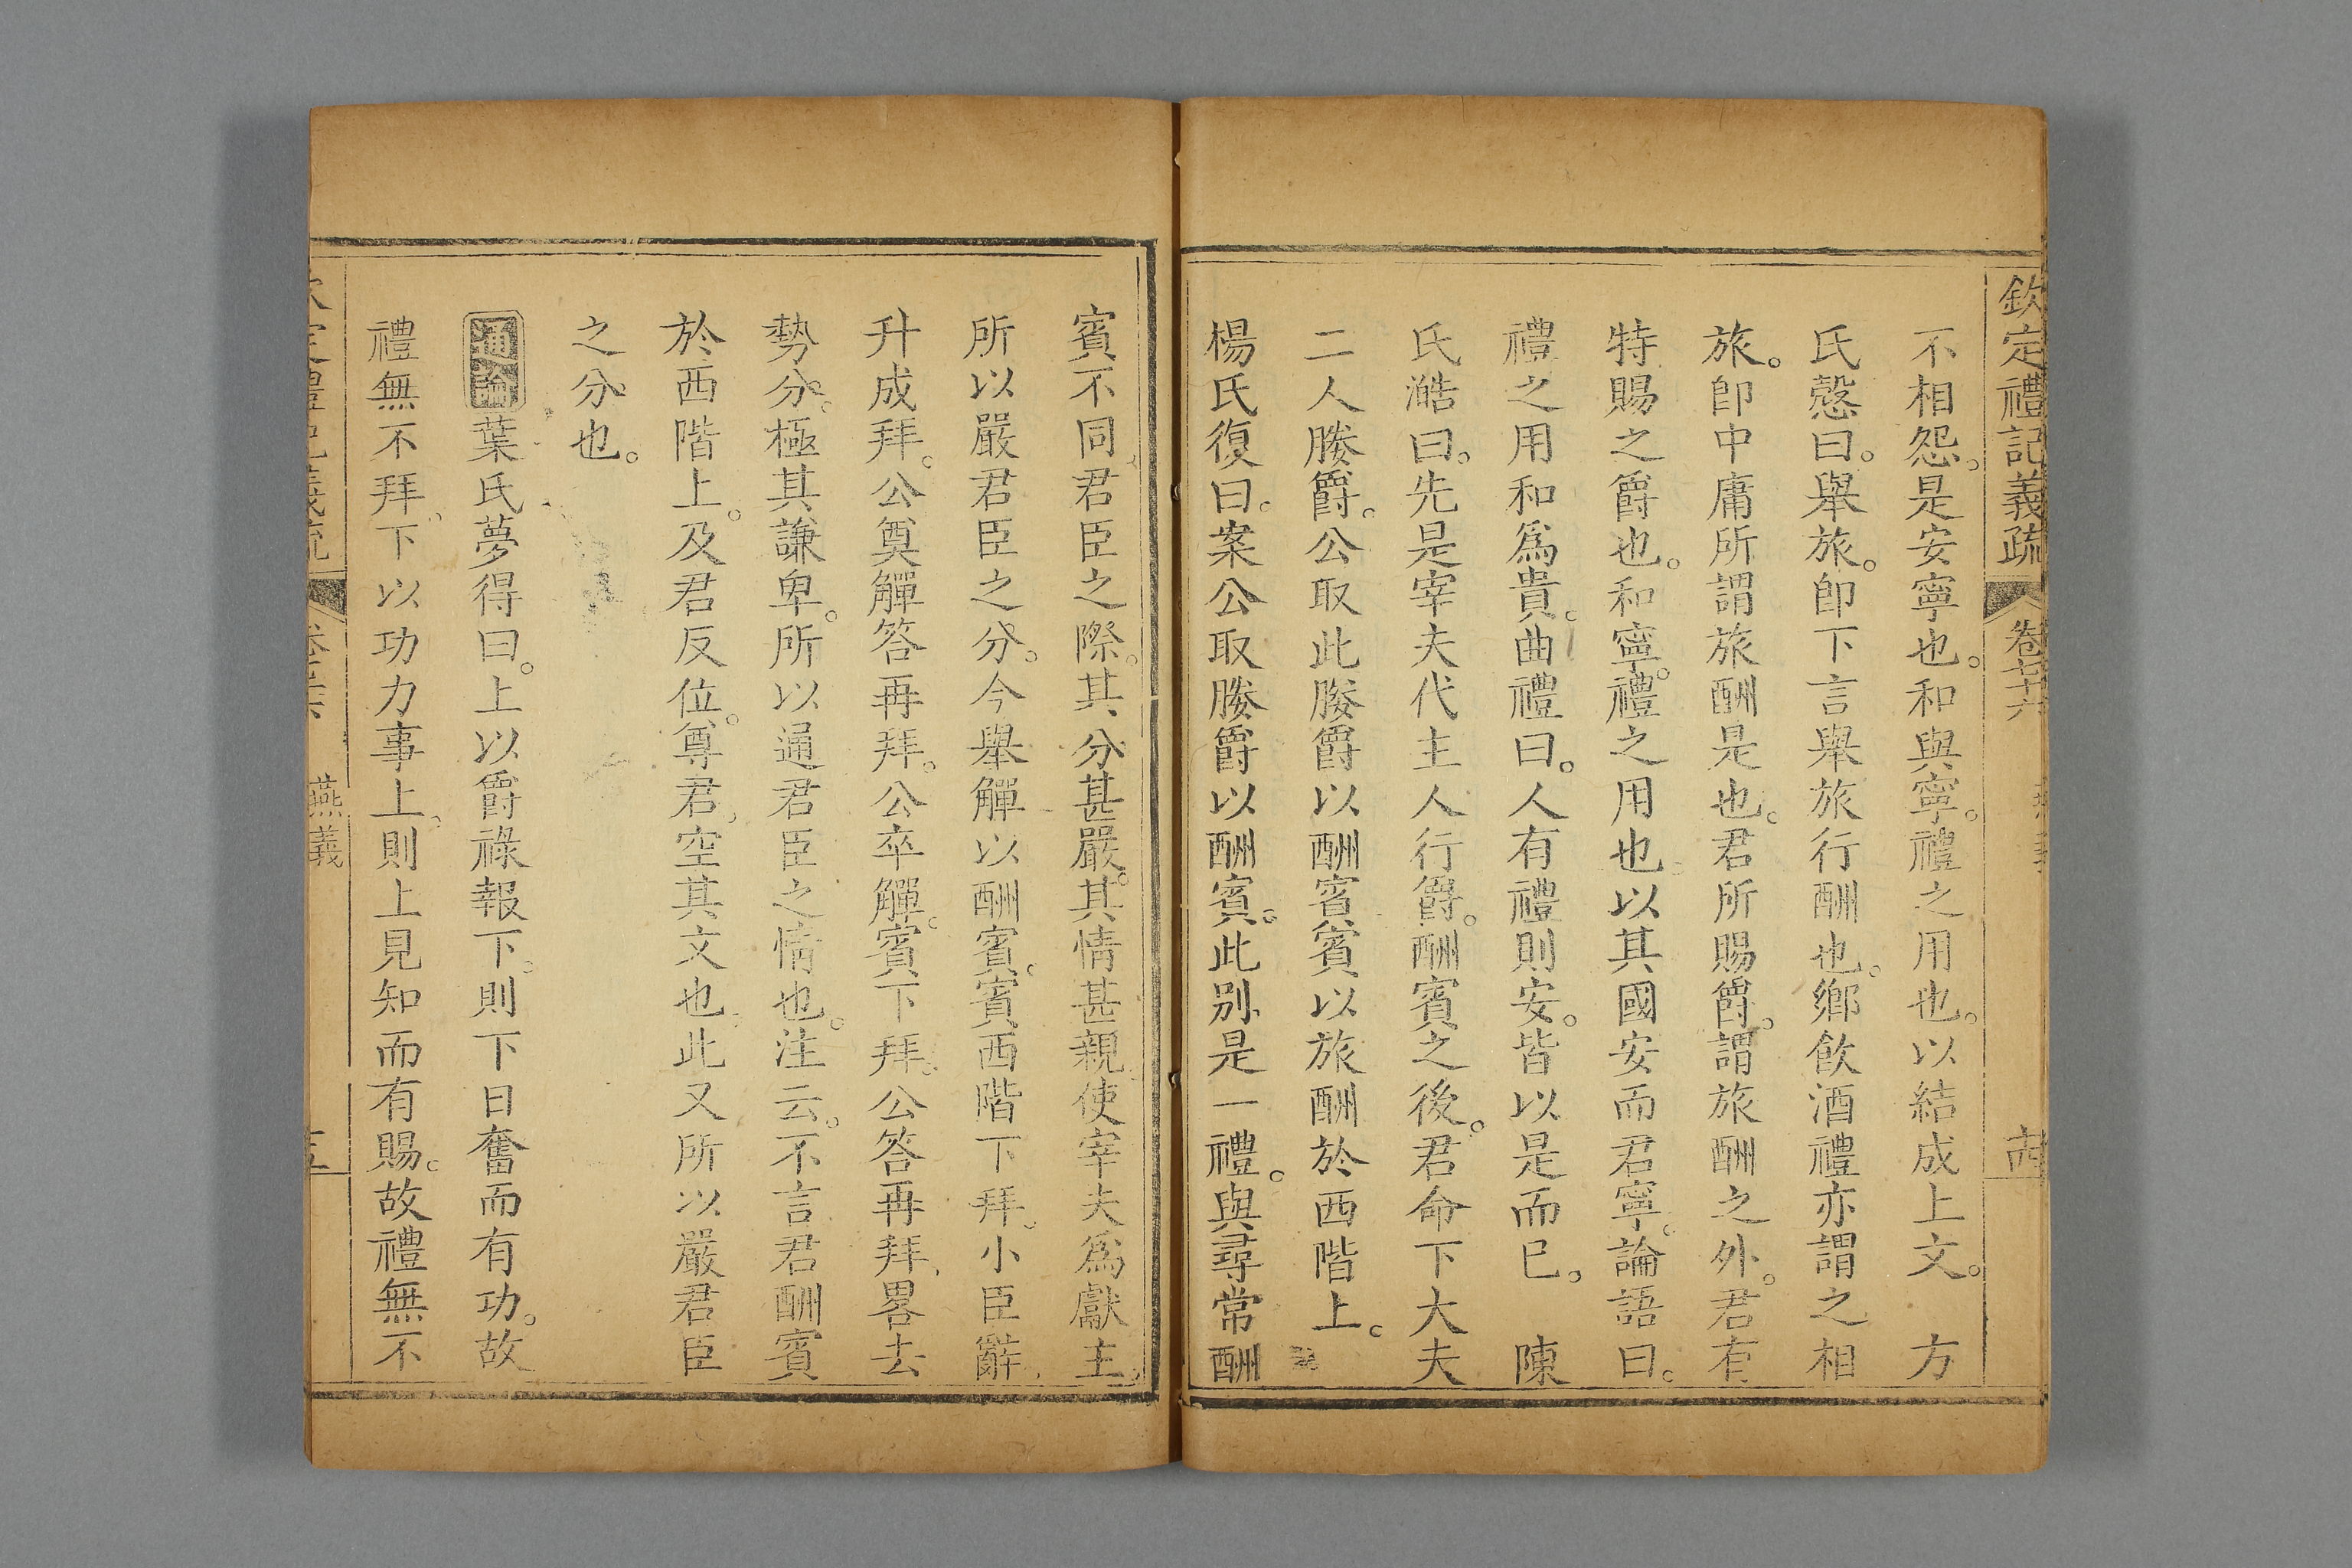 欽定禮記義疏 卷七十六
不相怨。是安寧也。和與寧。禮之用也。以結成上文。 方
氏慤曰。舉旅。卽下言舉旅行酬也。鄉飲酒禮亦謂之相
旅。卽中庸所謂旅酬是也。君所賜爵。謂旅酬之外。君有
特賜之爵也。和寧。禮之用也以其國安而君寧。論語曰。
禮之用和爲貴。曲禮曰。人有禮則安。皆以是而已。 陳
氏澔曰。先是宰夫代主人行爵。酬賓之後。君命下大夫
二人媵爵。公取此媵爵以酬賓賓以旅酬於西階上。
楊氏復曰。案公取媵爵以酬賓。此別是一禮。與尋常酬
賓不同君臣之際。其分甚嚴。其情甚親。使宰夫爲獻主。
所以嚴君臣之分。今舉觶以酬賓。賓西階下拜。小臣辭。
升成拜。公奠觶答再拜。公卒觶。賓下拜。公答再拜畧去
勢分。極其謙卑。所以通君臣之情也。注云。不言君酬賓
於西階上。及君反位。尊君。空其文也。此又所以嚴君臣
之分也。
通論 葉氏夢得曰。上以爵祿報下。則下日奮而有功。故
禮無不拜。下以功力事上。則上見知而有賜。故禮無不
燕義